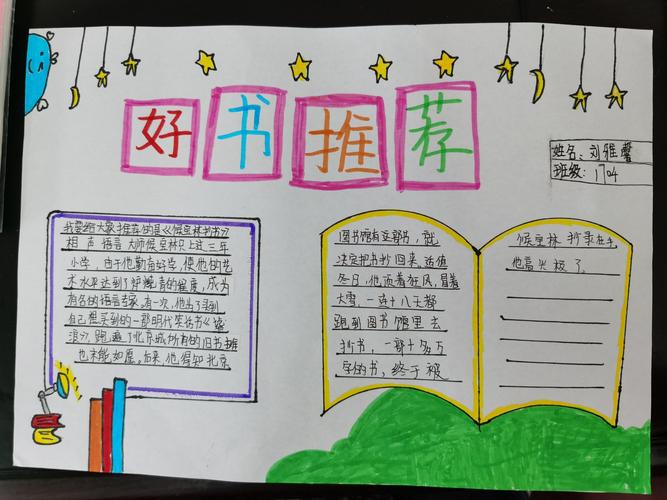 好书推荐
姓名：刘雅馨
班级：1704
我要给大家推荐的是《侯宝林抄书》
相声语言大师侯宝林只上过三年
小学，由于他勤奋好学，使他的艺
术水平达到了炉火纯青的程度，成为
有名的语言专家。有一次，他为了买到
自己想买到的一部明代笑话书《谑
浪》，跑遍了北京城所有的旧书摊
也未能如愿。后来，他得知北京
图书馆有这部书，就
决定把书抄回来。适值
冬日，他顶着狂风，冒着
大雪，一连十八天都
跑到图书馆里去
抄书，一部十多万
字的书，终于被
侯宝林抄录在手
他高兴极了。